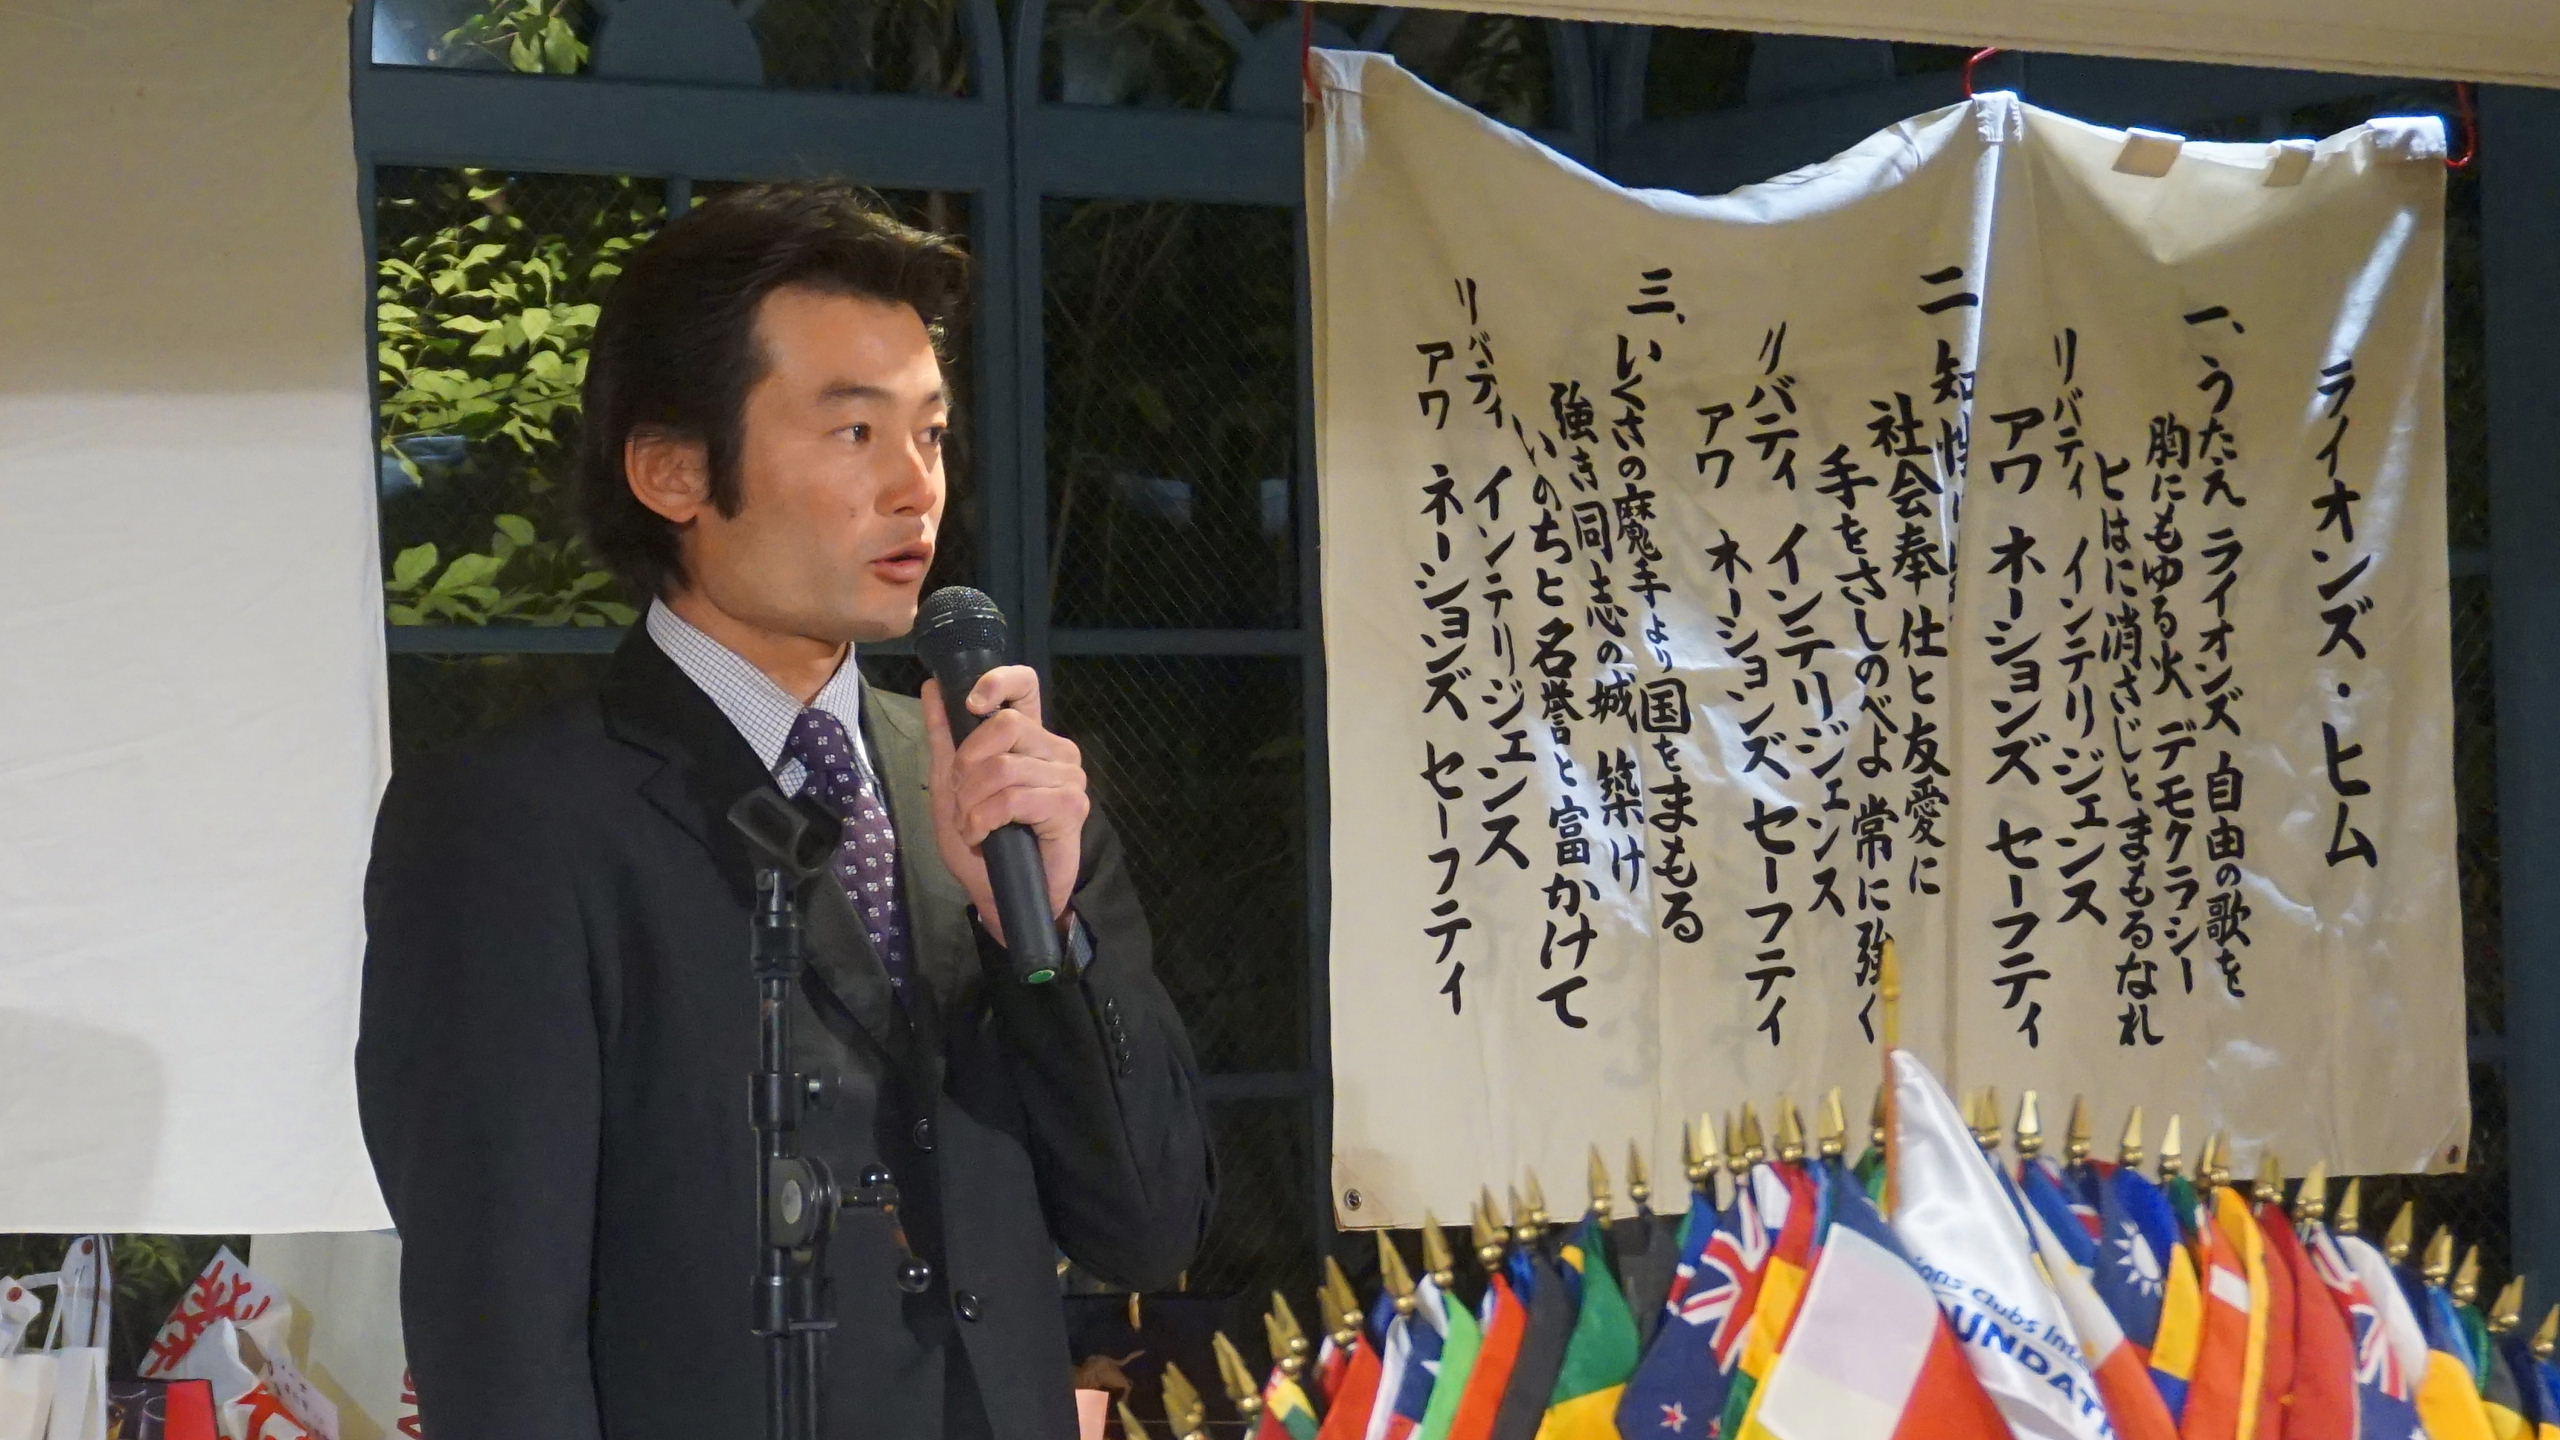 ライオンズ・ヒム
一、うたえ ライオンズ 自由の歌を
胸にもゆる火 デモクラシー
ヒはに消さじとまもるなれ
リバティ インテリジェンス
アワ ネーションズ セーフティ
二 知性
社会奉仕と友愛に
手をさしのべよ 常に強く
リバティ インテリジェンス
アワ ネーションズ セーフティ
三、いくさの魔手より国をまもる
強き同志の城 築け
いのちと名誉と富かけて
リバティ インテリジェンス
アワ ネーションズ セーフティ
ions Clubs Inte
UNDAT